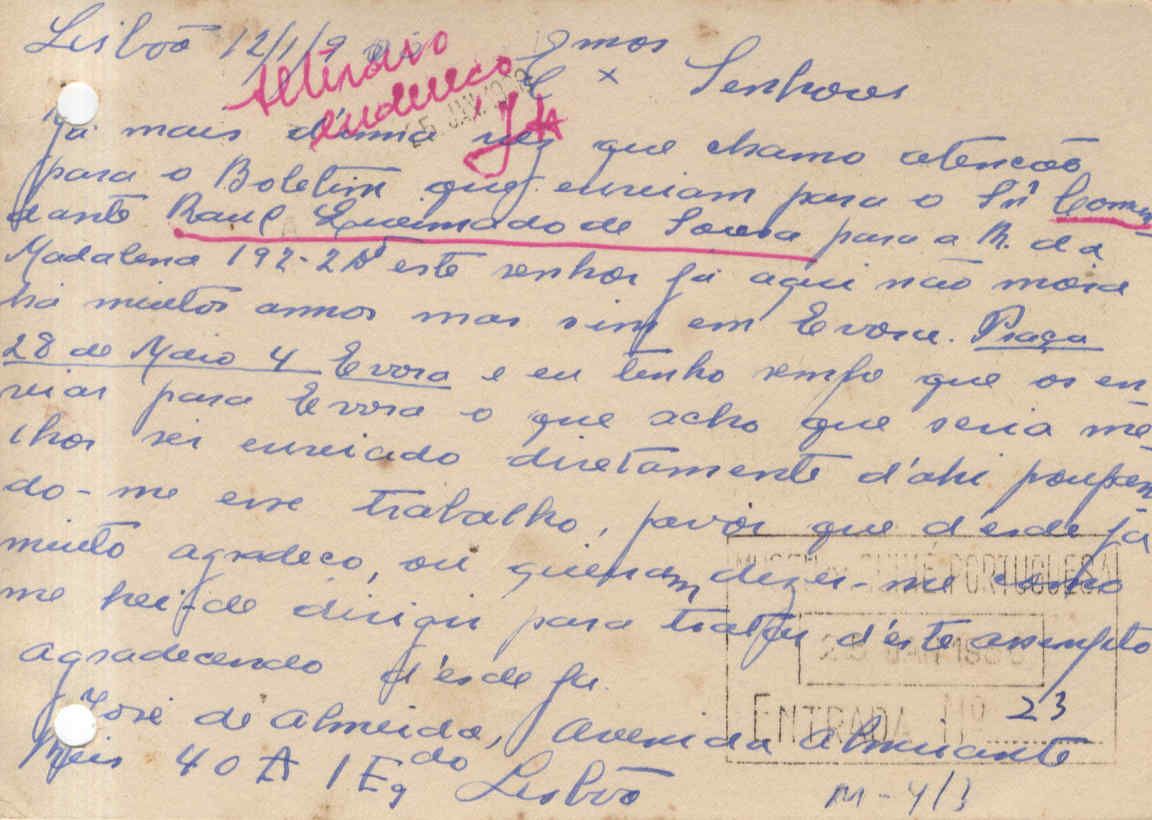 Lisbôa 12/1/9
Exmos
Senhores
Alterado
endereço
JAN. 19
Já mais d'uma vez que chamo atencão
para o Boletim que enviam para o Snr Coman
dante Raul Queimado de Sousa para a R. da
Madalena 192-2Dº este senhor já aqui não mora
há muitos annos mas sim em Evora. Praça
28 de Maio 4 Evora e eu tenho sempre que os en
viar para Evora o que acho que seria mé
lhor ser enviado diretamente d'ahi poupan
do-me esse trabalho, favôr que désde já
muito agradeco, ou queiram dizer-me como
me hei-de dirigir para tratar d'este assumpto
agradecendo désde já
José de Almeida, Avenida Almirante
Reis 40 A 1 Eqdo Lisbôa
PORTUGUESA
JAN 19
ENTRADA Nº 23
M-4/3